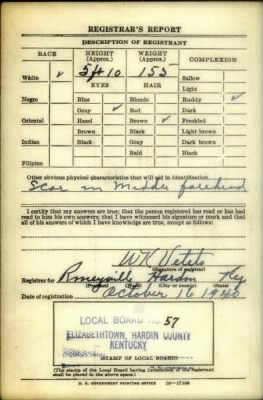 REGISTRAR'S REPORT
DESCRIPTION OF REGISTRANT
RACE HEIGHT (Approx.) WEIGHT (Approx.) COMPLEXION
White ✓ 5 ft 10 155 Sallow
EYES HAIR Light
Negro Blue Blonde Ruddy ✓
Gray ✓ Red Dark
Oriental Hazel Brown ✓ Freckled
Brown Black Light brown
Indian Black Gray Dark brown
Bald Black
Filipino
Other obvious physical characteristics that will aid in identification
Scar in Middle forehead
I certify that my answers are true; that the person registered has read or has had
read to him his own answers; that I have witnessed his signature or mark and that
all of his answers of which I have knowledge are true, except as follows:
(Signature of registrar)
Registrar for Hardin Ky
(Precinct) (County) (State)
Date of registration October 16 1940
LOCAL BOARD NO. 57
ELIZABETHTOWN, HARDIN COUNTY
KENTUCKY
(STAMP OF LOCAL BOARD)
(The stamp of the Local Board having jurisdiction of the registrant
shall be placed in the above space.)
U. S. GOVERNMENT PRINTING OFFICE